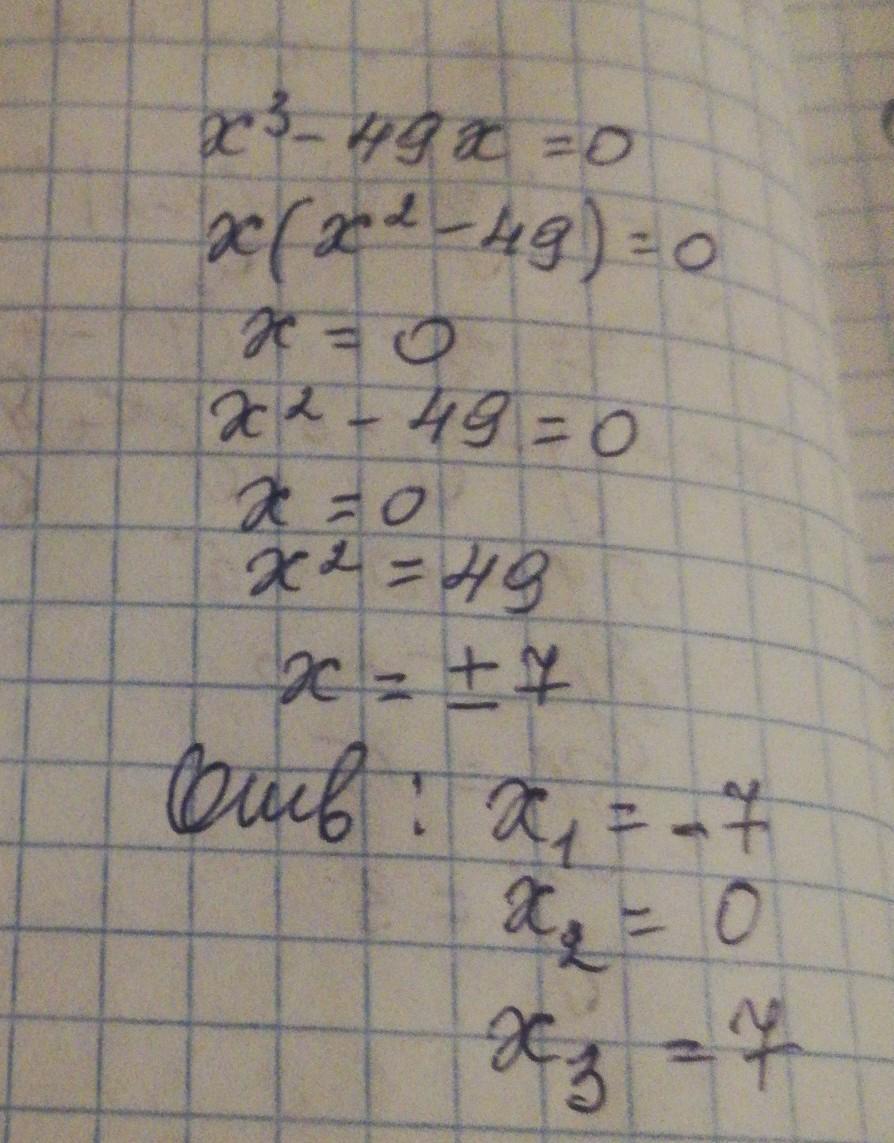 x³ - 49x = 0
x(x² - 49) = 0
x = 0
x² - 49 = 0
x = 0
x² = 49
x = ± 7
Отв : x₁ = -7
x₂ = 0
x₃ = 7